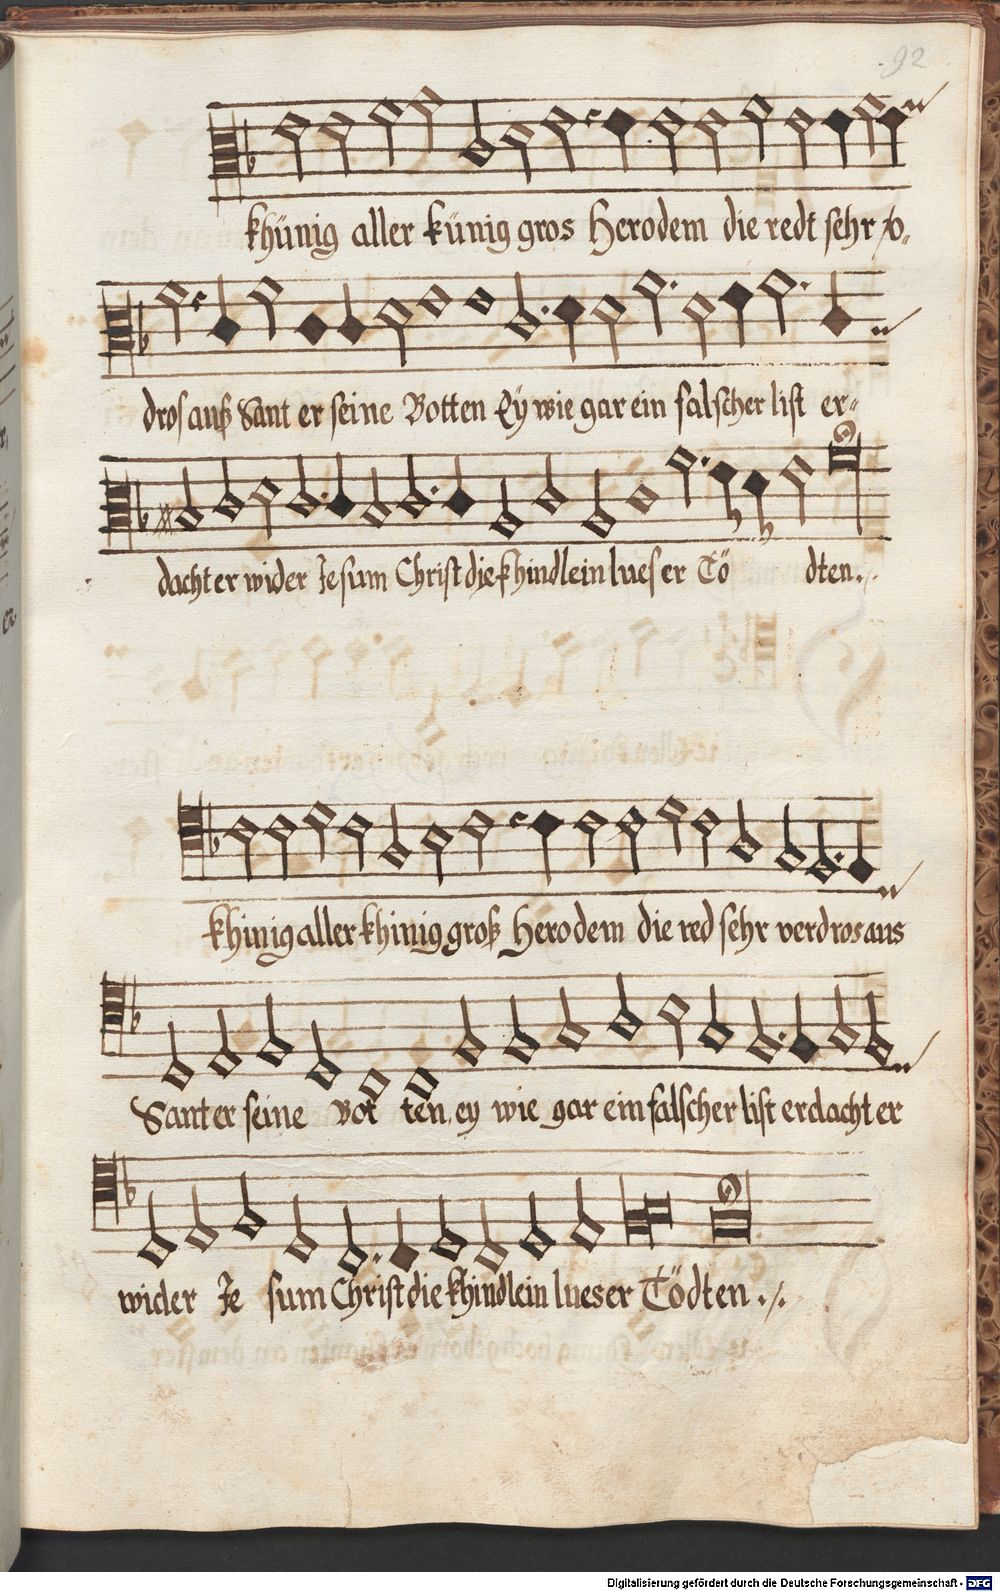 92
khünig aller künig gros Herodem die redt sehr v-
dros auß Sant er seine Botten Ey wie gar ein falscher list er-
dacht er wider Jesum Christ die khindlein lues er Tö dten.
khinig aller khinig groß Herodem die red sehr verdros aus
Sant er seine Bot ten, ey wie gar ein falscher list erdacht er
wider Je sum Christ die khindlein lues er Tödten ./.
Digitalisierung gefördert durch die Deutsche Forschungsgemeinschaft - DFG